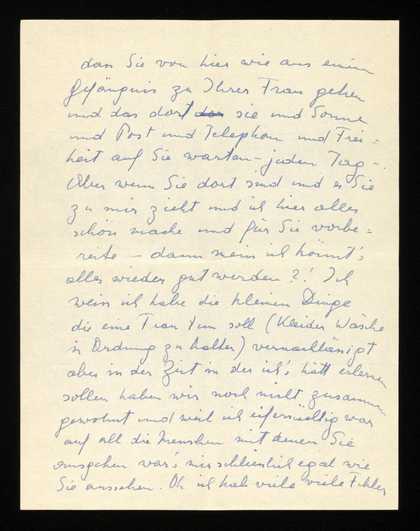 dass Sie von hier wie aus einem
Gefängnis zu Ihrer Frau gehen
und das dort sie und Sonne
und Post und Telephon und Frei=
heit auf Sie warten – jeden Tag –.
Aber wenn Sie dort sind und es Sie
zu mir zieht und ich hier alles
schön mache und für Sie vorbe=
reite – dann mein ich könnt's
alles wieder gut werden?! Ich
weiss ich habe die kleinen Dinge
die eine Frau tun soll (Kleider Wäsche
in Ordnung zu halten) vernachlässigt
aber in der Zeit in der ich's hätt erlernen
sollen haben wir noch nicht zusammen
gewohnt und weil ich eifersüchtig war
auf all die Menschen mit denen Sie
umgehen war's mir schliesslich egal wie
Sie aussehen. Oh ich hab viele viele Fehler